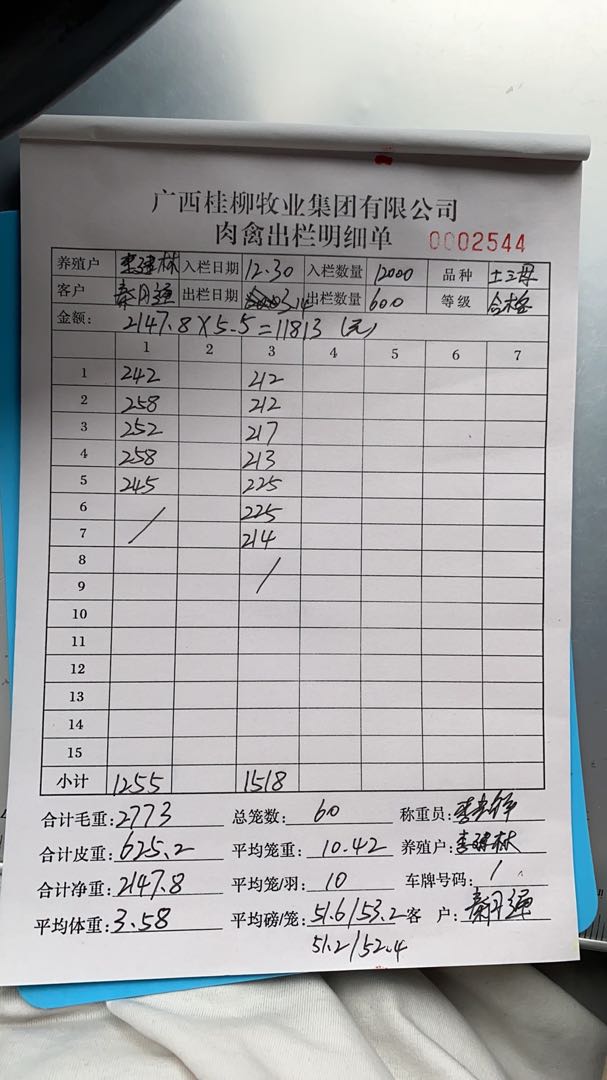 广西桂柳牧业集团有限公司
肉禽出栏明细单 0002544
养殖户 李建林 入栏日期 12.30 入栏数量 12000 品种 土三母
客户 秦月强 出栏日期 3.14 出栏数量 600 等级 合格
金额: 2147.8×5.5=11813(元)
1 2 3 4 5 6 7
1 242 212
2 258 212
3 252 217
4 258 213
5 245 225
6 / 225
7 214
8 /
9
10
11
12
13
14
15
小计 1255 1518
合计毛重:2773 总笼数: 60 称重员:李
合计皮重:625.2 平均笼重: 10.42 养殖户:李建林
合计净重:2147.8 平均笼/羽: 10 车牌号码: /
平均体重:3.58 平均磅/笼:51.6/53.2 客 户:秦月强
51.2/52.4